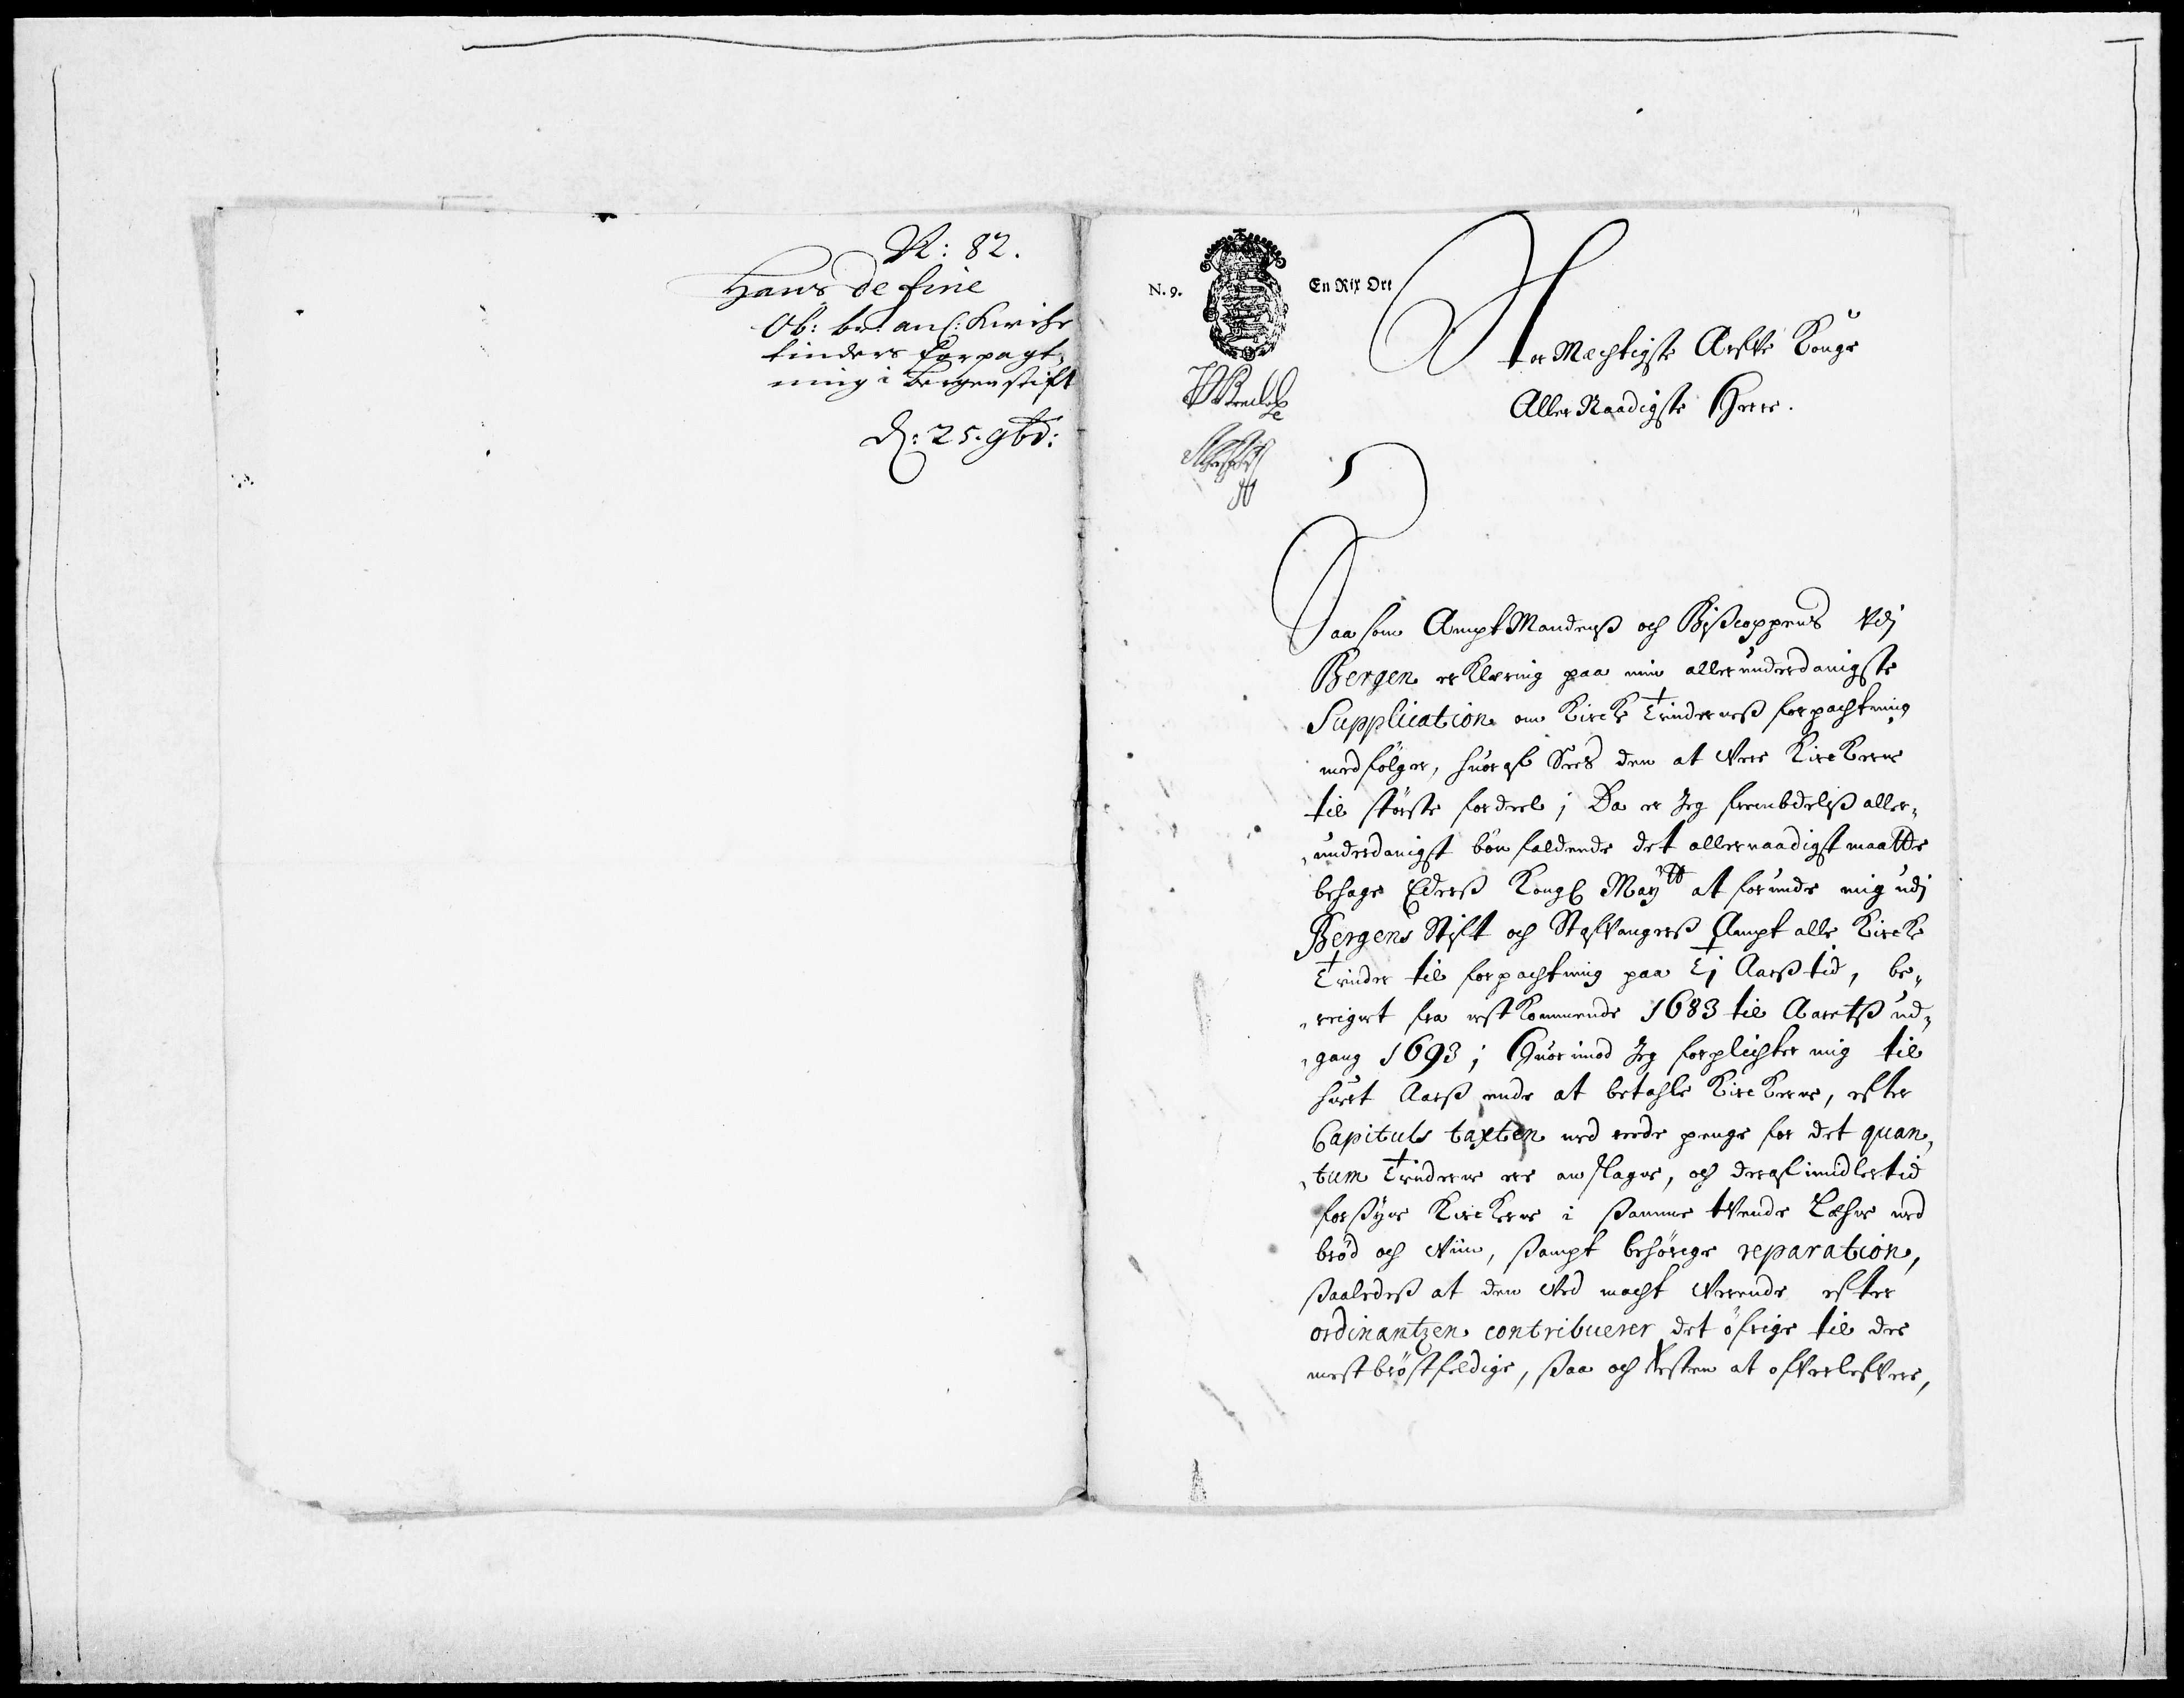 N: 82.
Hans de fine
Ob: be: anl: Kirche
tinders forpagt-
ning i Bergenstift
d: 25. 9bd:
N. 9.
En Rix Ort
Stor Mechtigste Arfve Konge
Aller Naadigste Herre.
Saa som AmptMandens och Biscoppens Vdj
Bergen erklering paa min allerunderdanigste
Supplication om Kircke Tindernes forpachtning
medfölger, huoraf Sees den at Vere Kirckerne
til störste fordeel; Da er Jeg frembdelß aller-
underdanigst bönfaldende det allernaadigst maatte
behage Eders Kongl May:tt at forunde mig udj
Bergens Stift och Stafvangers Ampt alle Kircke
Tinder til forpachtning paa Tj Aarß tid, be-
reignet fra nestkommende 1683 til Aaretß ud-
gang 1693; Huorimod Jeg forplichter mig til
huert Aarß ende at betahle Kirckerne, efter
Capituls taxten med rede penge for det quan-
tum Tinderne ere anslagne, och deraf imidlertid
forsyne Kirckerne i samme tvende Læhne med
bröd och Viin, sampt behörige reparation,
saaledeß at den Ved macht Verende efter
ordinantzen contribuerer det öfrige til de
mest bröstfeldige, saa och Resten at ofverlefvere,